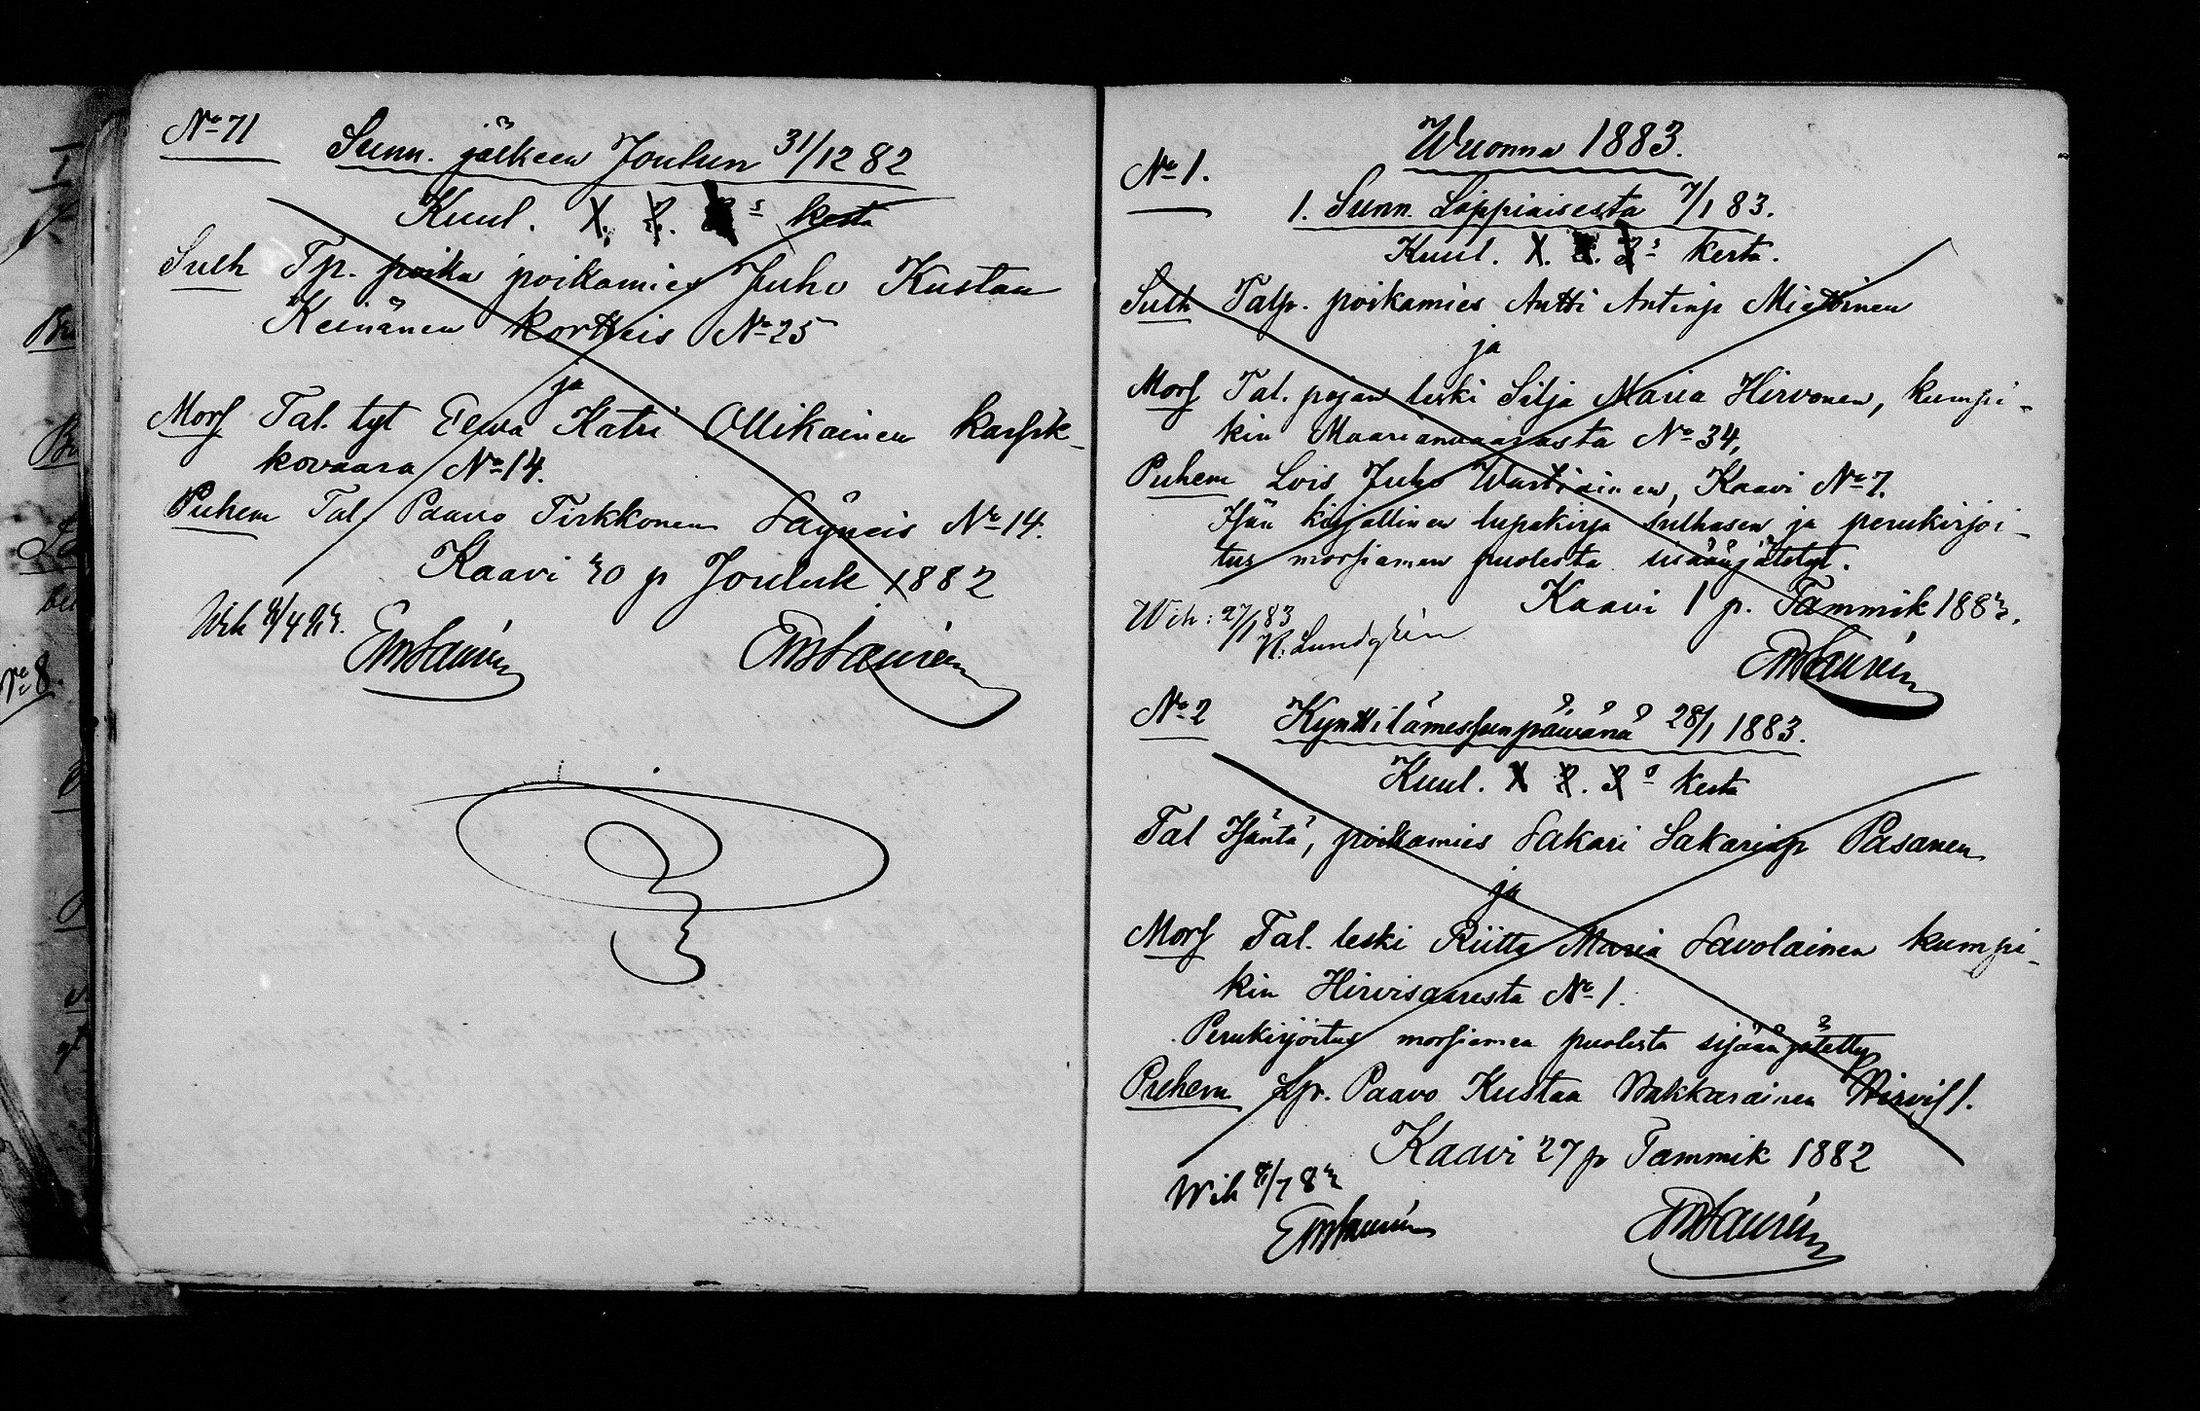 No 71
Sunn. jälkeen Joulun 31/12 82
Kuul. 1. 2. 3s kerta
Sulh Tp. poika poikamies Juho Kustaa
Keinänen Kortteis No 25
ja
Morſ Tal. tyt Eewa Katri Ollikainen
kovaara No 14.
Puhem Tal. Paavo Tirkkonen Säyneis No 14.
Kaavi 30 p Jouluk 1882
Wih
No 8.
Wuonna 1883.
No 1.
1. Sunn. Loppiaisesta 7/1 83.
Kuul. 1. 2. 3s kerta.
Sulh Talp. poikamies Antti Antinp Miettinen
ja
Morſ Tal. pojan leski Silja Maria Hirvonen, kumpi-
kin Maarianvaarasta No 34,
Puhem Lois Juho Wartiainen, Kaavi No 7.
Iſän kirjallinen lupakirja sulhasen ja perukirjoi-
tus morſiamen puolesta sisäänjätetyt.
Kaavi 1 p. Tammik 1883.
Wih: 27/1 83
K. Lundqvin
No 2
Kynttilämesſunpäivänä 28/1 1883.
Kuul. 1 2. 3s kerta
Tal Iſäntä, poikamies Sakari Sakarinp Pasanen
ja
Morſ Tal. leski Riitta Maria Savolainen kumpi-
kin Hirvisaaresta No 1.
Perukirjoitus morſiamen puolesta sisäänjätetty
Puhem Lpr. Paavo Kustaa Wakkarainen Hirviſ 1.
Kaavi 27 p Tammik 1882
Wih